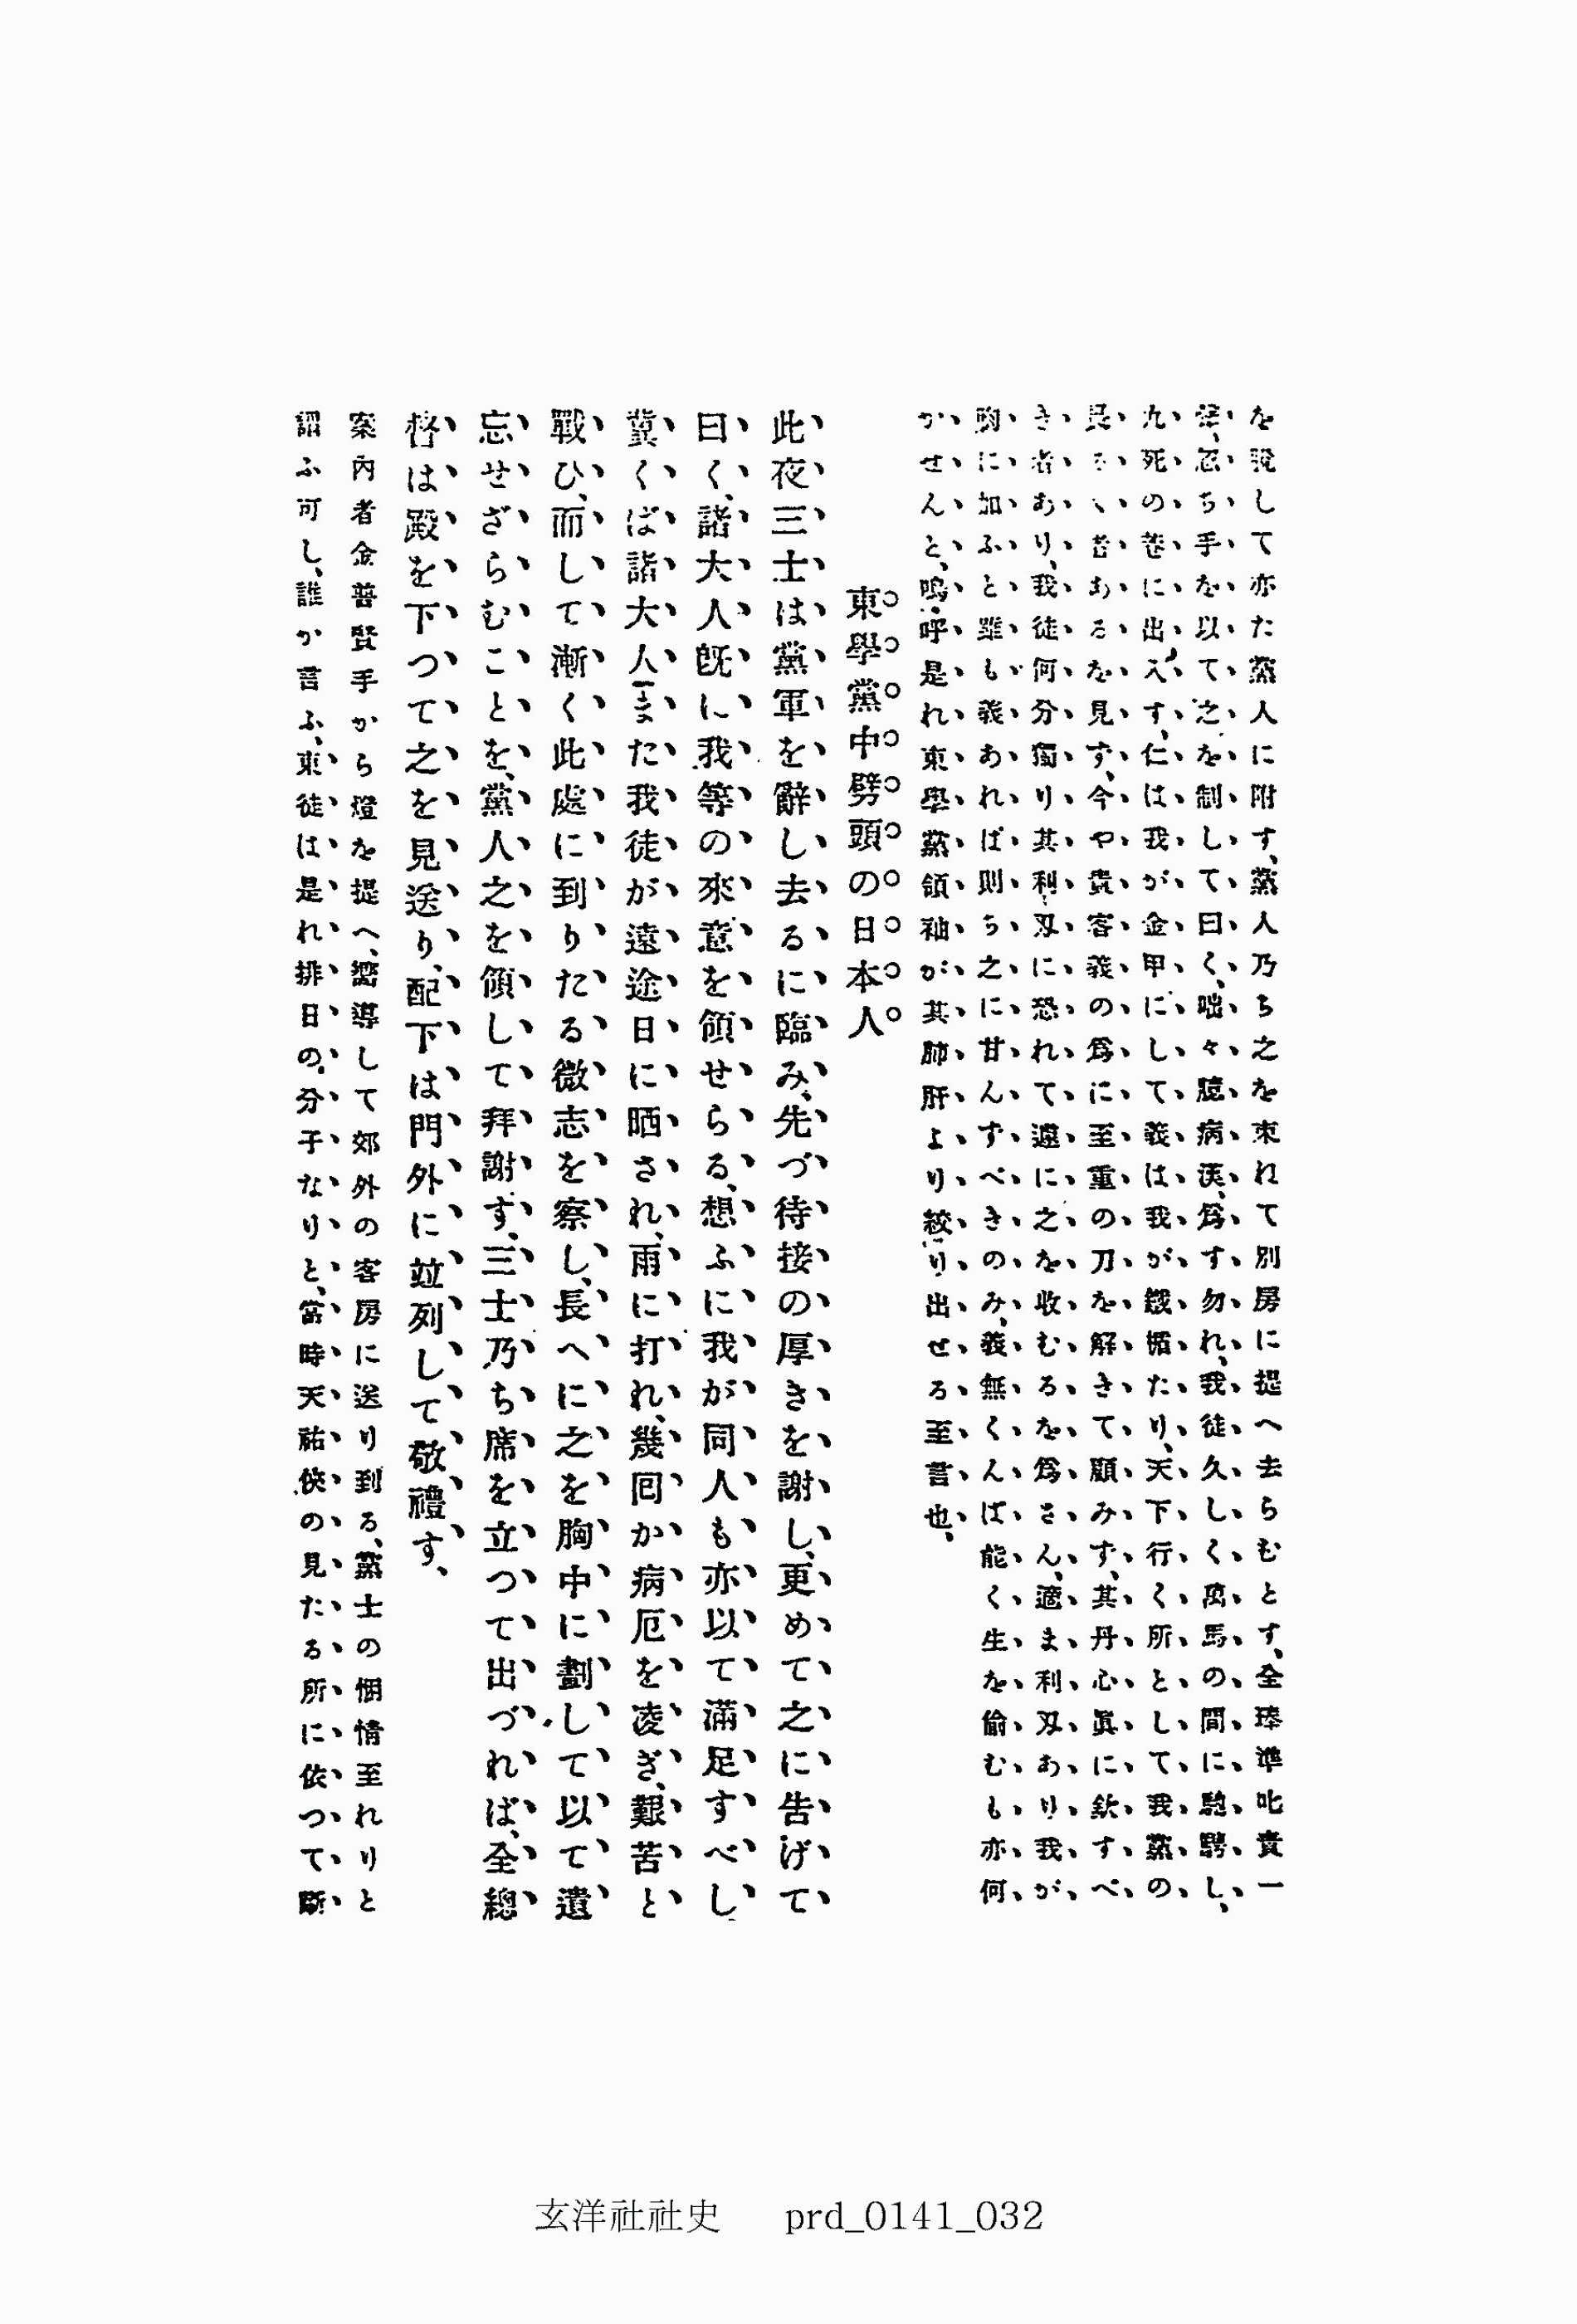 を脱して亦た黨人に附す、黨人乃ち之を束れて別房に提へ去らむとす、全琫準叱責一
聲、忽ち手を以て之を制して曰く、咄々臆病漢、爲す勿れ、我徒久しく萬馬の間に馳騁し、
九死の巷に出入す、仁は我が金甲にして、義は我が鐵楯たり、天下行く所として我黨の
畏るゝ者あるを見ず、今や貴客義の爲に至重の刀を解きて顧みず、其丹心眞に欽すべ
き者あり、我徒何分獨り其利刃に恐れて遽に之を收むるを爲さん、適ま利刃あり我が
胸に加ふと雖も義あれば則ち之に甘んずべきのみ、義無くんば能く生を偷むも亦何
かせんと、嗚呼是れ東學黨領袖が其肺肝より絞り出せる至言也、
東學黨中劈頭の日本人
此夜三士は黨軍を辭し去るに臨み、先づ待接の厚きを謝し、更めて之に告げて
曰く、諸大人既に我等の來意を領せらる、想ふに我が同人も亦以て滿足すべし、
冀くば諸大人一また我徒が遠途日に晒され、雨に打れ、幾回か病厄を凌ぎ、艱苦と
戰ひ、而して漸く此處に到りたる微志を察し、長へに之を胸中に劃して以て遺
忘せざらむことを、黨人之を領して拜謝す、三士乃ち席を立つて出づれば、全總
督は殿を下つて之を見送り、配下は門外に竝列して敬禮す、
案內者金善賢手から燈を提へ、嚮導して郊外の客房に送り到る、黨士の悃情至れりと
謂ふ可し、誰か言ふ、東徒は是れ排日の分子なりと、當時天祐俠の見たる所に依つて斷
玄洋社社史 prd_0141_032